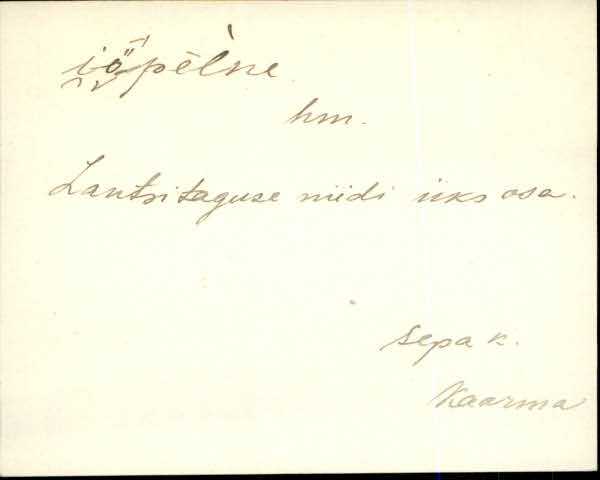 iö̀pēlne
hm.
Lautsitaguse niidi üks osa.
Sepa k.
Kaarma